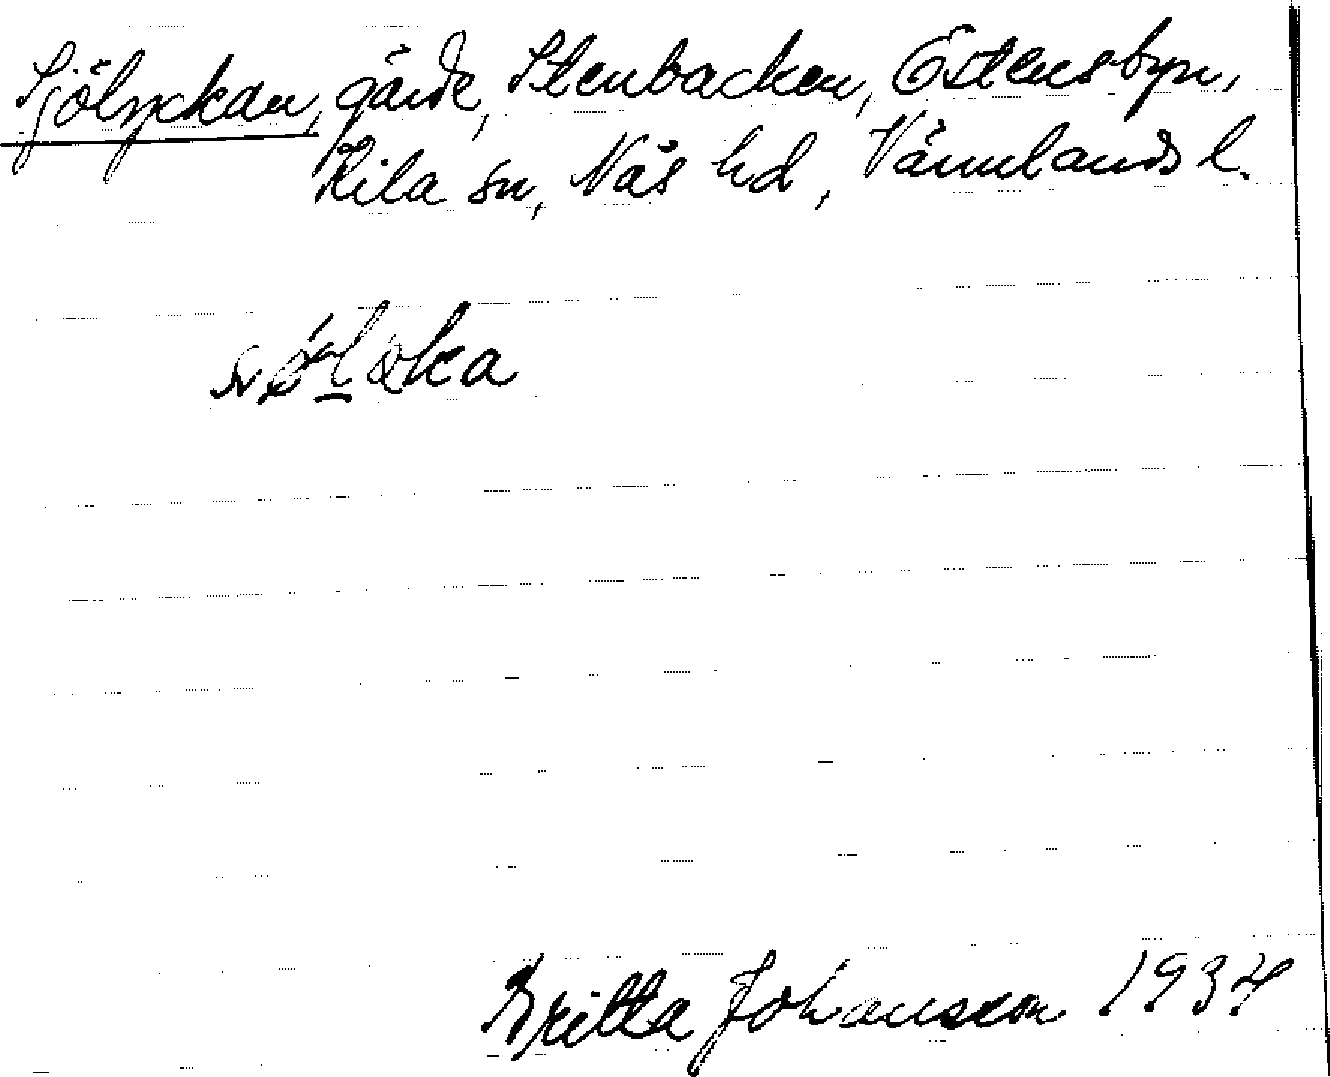 Sjölyckan, gärde, Stenbacken, Östensbyn,
Kila sn, Näs hd, Värmlands l.
Britta Johansson 1934